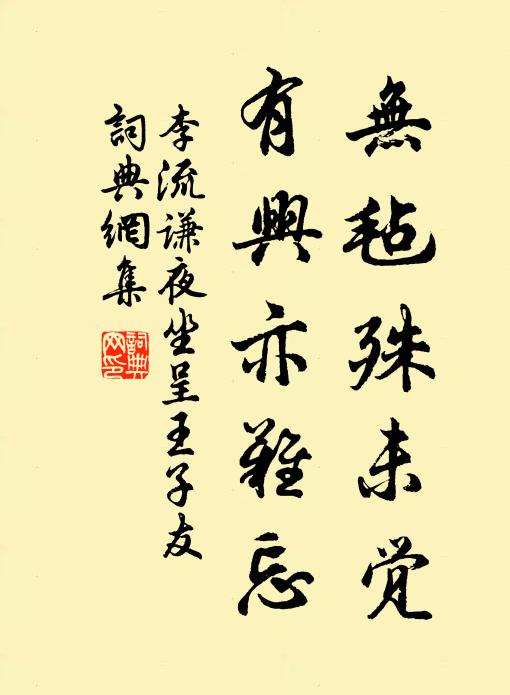 無毡殊未覺
有興亦難忘
李流謙夜坐呈王子友
詞典網集
詞典
网印